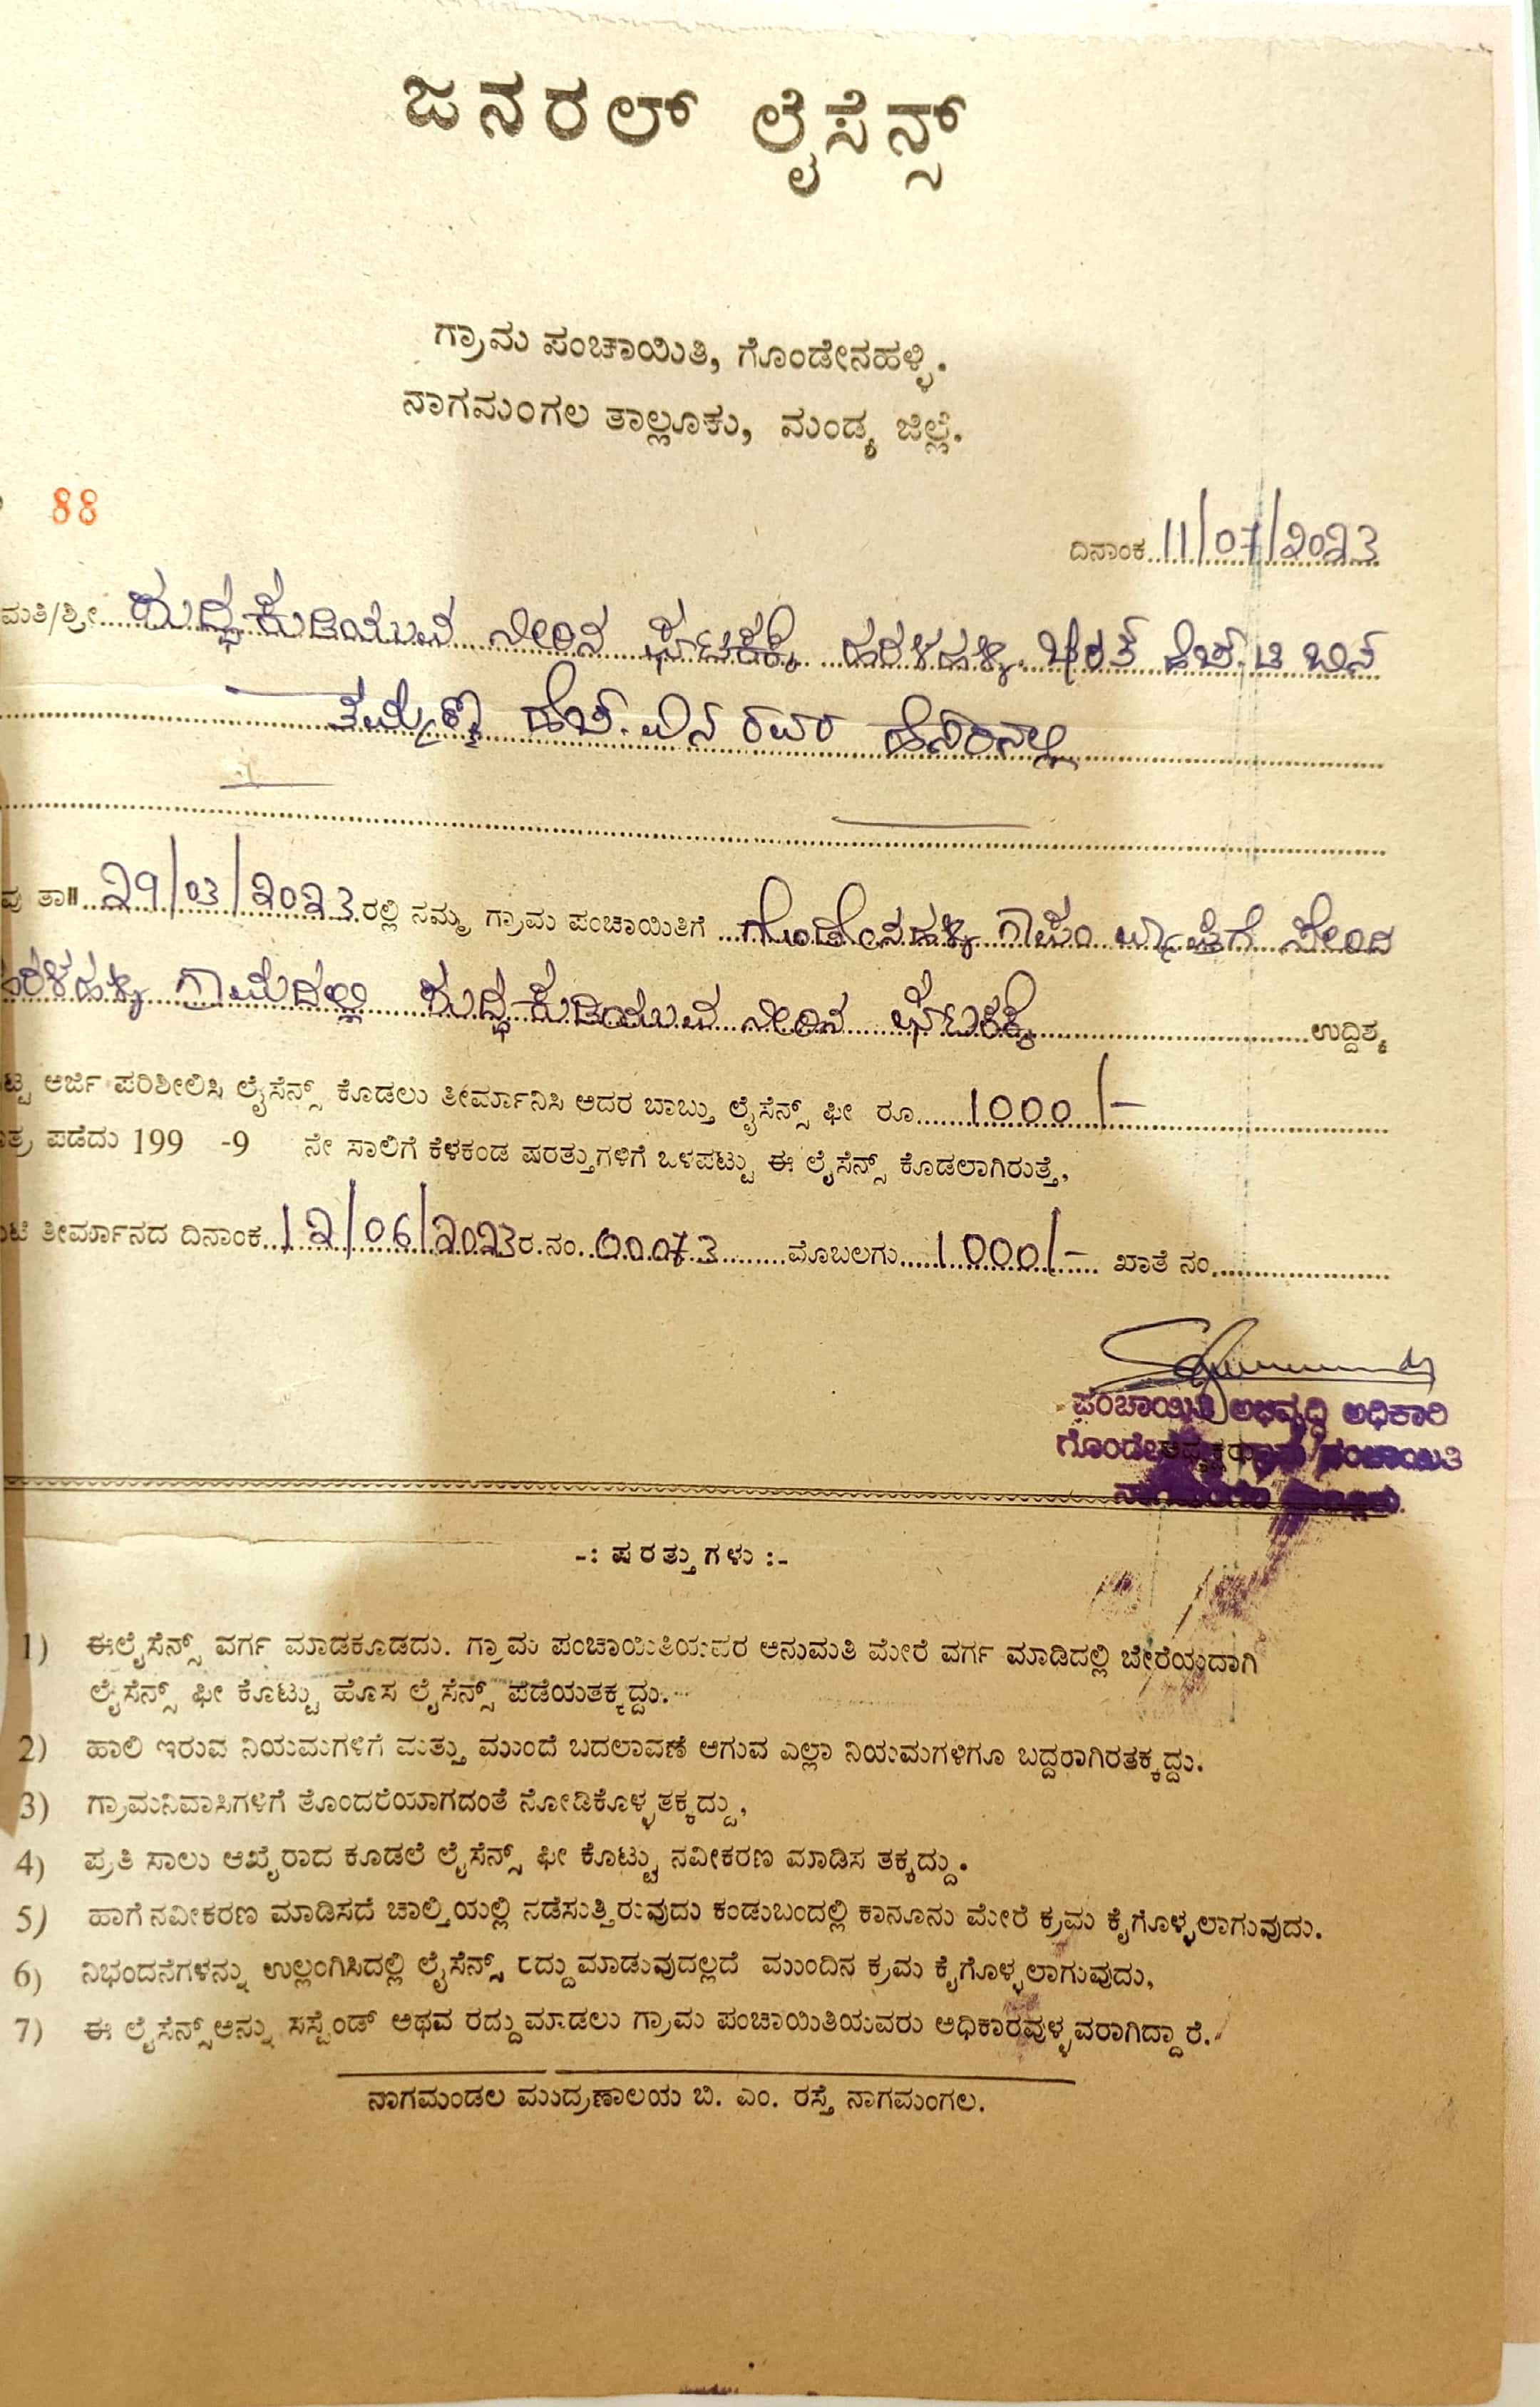 ಜನರಲ್ ಲೈಸೆನ್ಸ್
ಗ್ರಾಮ ಪಂಚಾಯಿತಿ, ಗೊಂಡೇನಹಳ್ಳಿ.
ನಾಗಮಂಗಲ ತಾಲ್ಲೂಕು, ಮಂಡ್ಯ ಜಿಲ್ಲೆ.
88
ದಿನಾಂಕ 11/07/2023
ಮತಿ/ಶ್ರೀ ಶುದ್ಧ ಕುಡಿಯುವ ನೀರಿನ ಘಟಕಕ್ಕೆ ಹರಳಹಳ್ಳಿ ಭರತ್ ಹೆಚ್.ಟಿ ಬಿನ್
ಹೆಚ್.ಎನ್ ರವರ ಹೆಸರಿನಲ್ಲಿ
ವು ತಾ॥ 29/03/2023 ರಲ್ಲಿ ನಮ್ಮ ಗ್ರಾಮ ಪಂಚಾಯಿತಿಗೆ ಗೊಂಡೇನಹಳ್ಳಿ ಗ್ರಾಪಂ ವ್ಯಾಪ್ತಿಗೆ ಸೇರಿದ
ಹರಳಹಳ್ಳಿ ಗ್ರಾಮದಲ್ಲಿ ಶುದ್ಧ ಕುಡಿಯುವ ನೀರಿನ ಘಟಕಕ್ಕೆ ಉದ್ದಿಶ್ಯ
ಟ್ಟ ಅರ್ಜಿ ಪರಿಶೀಲಿಸಿ ಲೈಸೆನ್ಸ್ ಕೊಡಲು ತೀರ್ಮಾನಿಸಿ ಅದರ ಬಾಬ್ತು ಲೈಸೆನ್ಸ್ ಫೀ ರೂ 1000/-
ತ್ರ ಪಡೆದು 199 -9 ನೇ ಸಾಲಿಗೆ ಕೆಳಕಂಡ ಷರತ್ತುಗಳಿಗೆ ಒಳಪಟ್ಟು ಈ ಲೈಸೆನ್ಸ್ ಕೊಡಲಾಗಿರುತ್ತೆ,
ತೀರ್ಮಾನದ ದಿನಾಂಕ 12/06/2023 ರ.ನಂ. 00073 ಮೊಬಲಗು 1000/- ಖಾತೆ ನಂ.
ಪಂಚಾಯಿತಿ ಅಭಿವೃದ್ಧಿ ಅಧಿಕಾರಿ
ಪಂಚಾಯಿತಿ
-: ಷರತ್ತುಗಳು :-
1) ಈಲೈಸೆನ್ಸ್ ವರ್ಗ ಮಾಡಕೂಡದು. ಗ್ರಾಮ ಪಂಚಾಯಿತಿಯವರ ಅನುಮತಿ ಮೇರೆ ವರ್ಗ ಮಾಡಿದಲ್ಲಿ ಬೇರೆಯದಾಗಿ
ಲೈಸೆನ್ಸ್ ಫೀ ಕೊಟ್ಟು ಹೊಸ ಲೈಸೆನ್ಸ್ ಪಡೆಯತಕ್ಕದ್ದು.
2) ಹಾಲಿ ಇರುವ ನಿಯಮಗಳಿಗೆ ಮತ್ತು ಮುಂದೆ ಬದಲಾವಣೆ ಆಗುವ ಎಲ್ಲಾ ನಿಯಮಗಳಿಗೂ ಬದ್ದರಾಗಿರತಕ್ಕದ್ದು.
3) ಗ್ರಾಮನಿವಾಸಿಗಳಿಗೆ ತೊಂದರೆಯಾಗದಂತೆ ನೋಡಿಕೊಳ್ಳತಕ್ಕದ್ದು,
4) ಪ್ರತಿ ಸಾಲು ಆಖೈರಾದ ಕೂಡಲೆ ಲೈಸೆನ್ಸ್ ಫೀ ಕೊಟ್ಟು ನವೀಕರಣ ಮಾಡಿಸ ತಕ್ಕದ್ದು.
5) ಹಾಗೆ ನವೀಕರಣ ಮಾಡಿಸದೆ ಚಾಲ್ತಿಯಲ್ಲಿ ನಡೆಸುತ್ತಿರುವುದು ಕಂಡುಬಂದಲ್ಲಿ ಕಾನೂನು ಮೇರೆ ಕ್ರಮ ಕೈಗೊಳ್ಳಲಾಗುವುದು.
6) ನಿಭಂದನೆಗಳನ್ನು ಉಲ್ಲಂಗಿಸಿದಲ್ಲಿ ಲೈಸೆನ್ಸ್ ರದ್ದುಮಾಡುವುದಲ್ಲದೆ ಮುಂದಿನ ಕ್ರಮ ಕೈಗೊಳ್ಳಲಾಗುವುದು,
7) ಈ ಲೈಸೆನ್ಸ್‌ಅನ್ನು ಸಸ್ಪೆಂಡ್ ಅಥವ ರದ್ದುಮಾಡಲು ಗ್ರಾಮ ಪಂಚಾಯಿತಿಯವರು ಅಧಿಕಾರವುಳ್ಳವರಾಗಿದ್ದಾರೆ.
ನಾಗಮಂಡಲ ಮುದ್ರಣಾಲಯ ಬಿ. ಎಂ. ರಸ್ತೆ ನಾಗಮಂಗಲ.